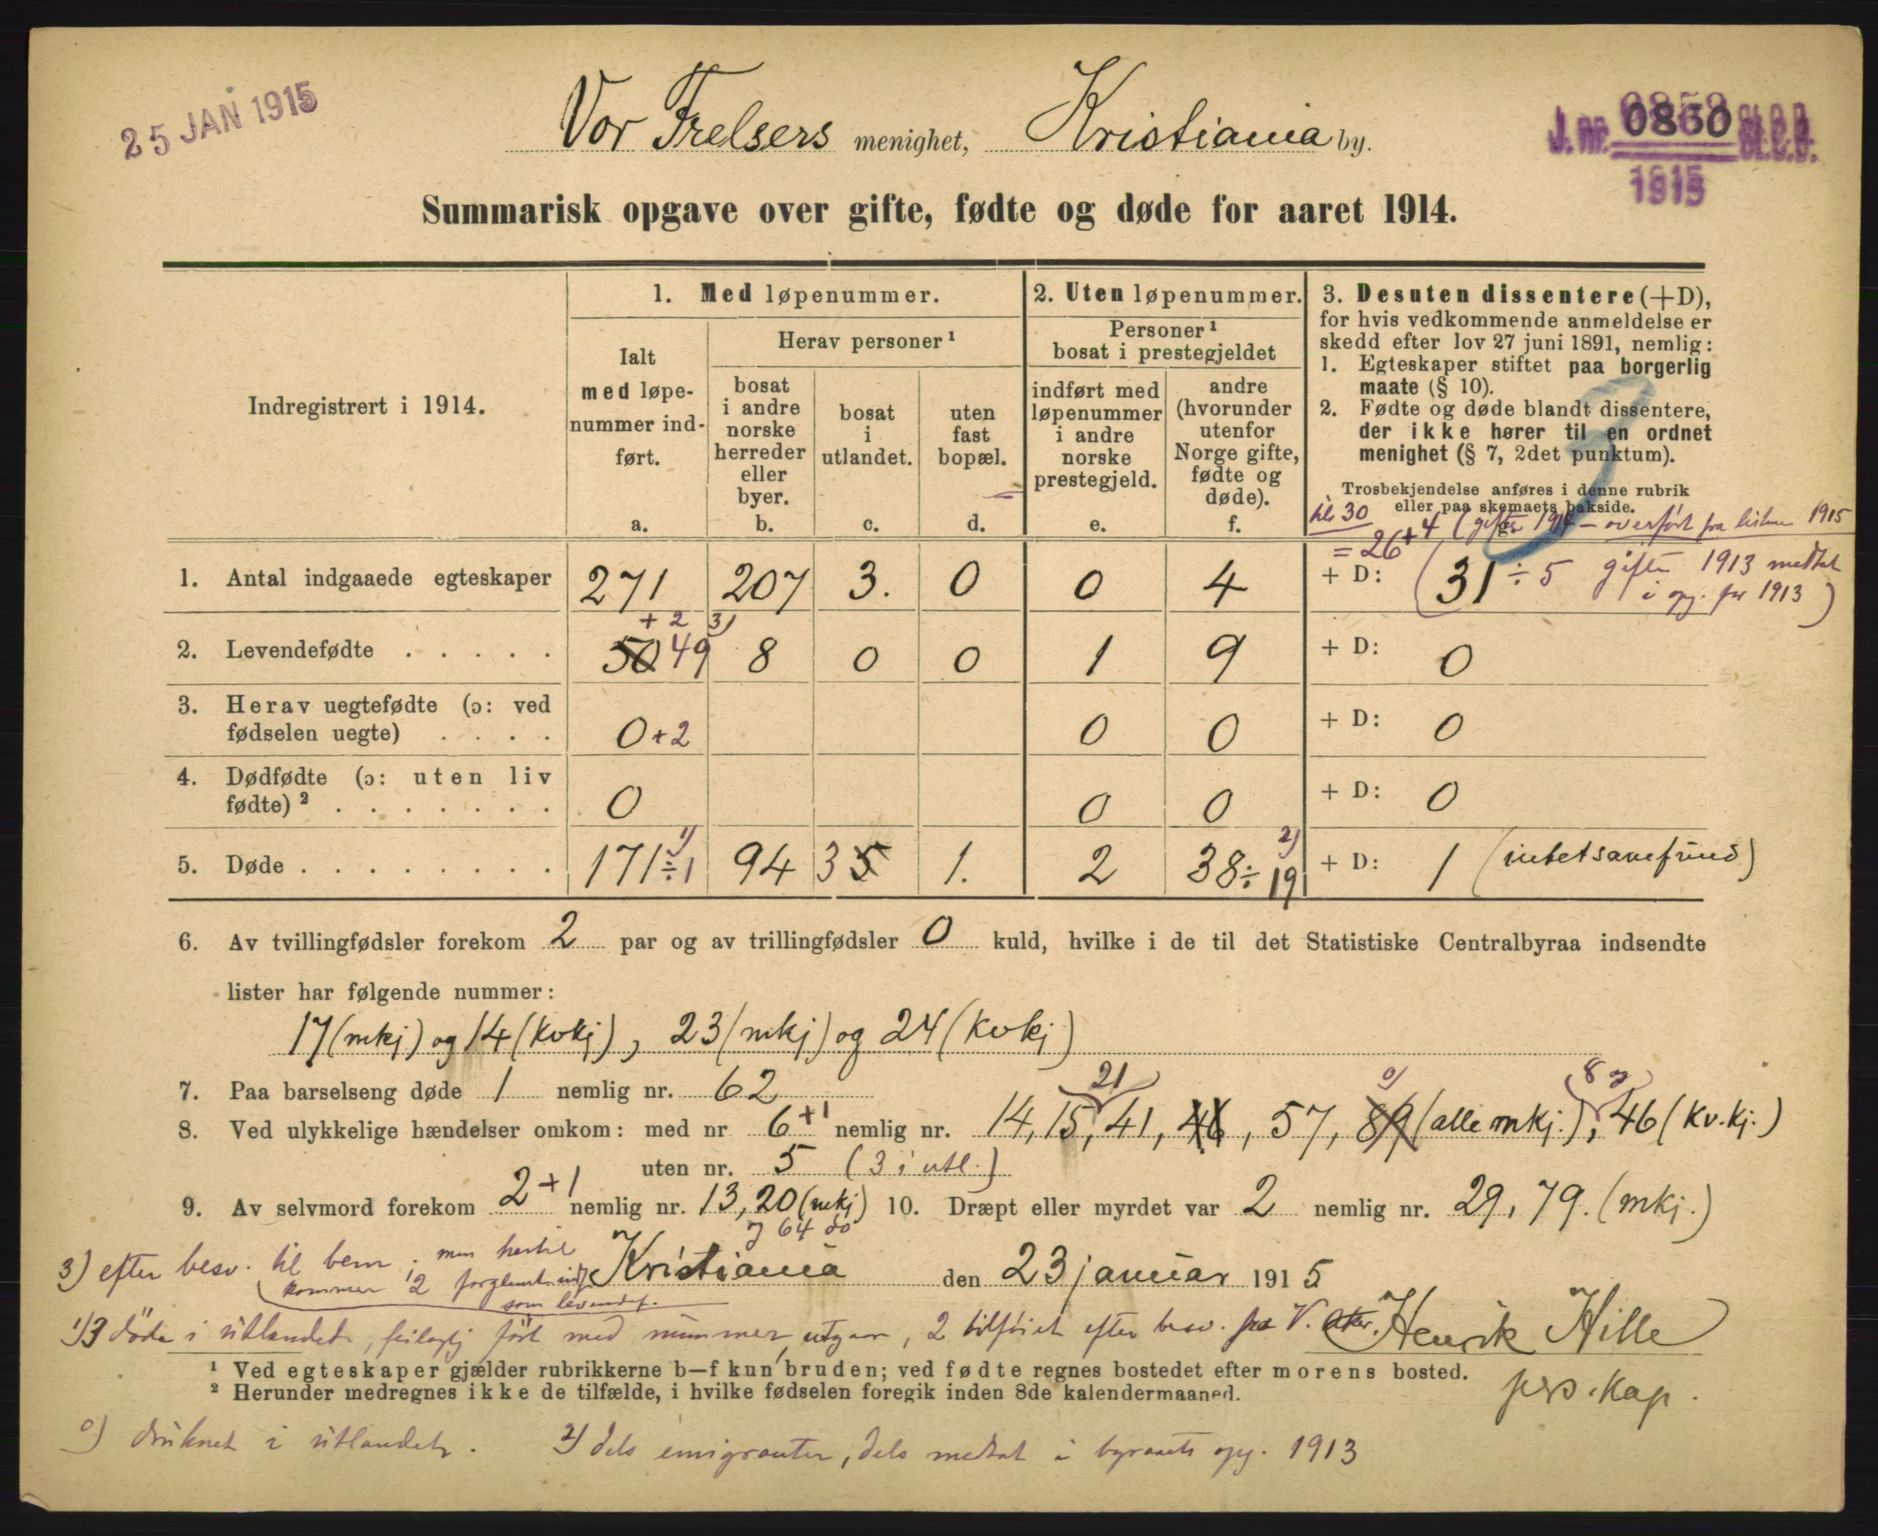 25 JAN 1915
Vor Frelsers menighet, Kristiania by.
J. nr. 0860 St.C.B.
1915
Summarisk opgave over gifte, fødte og døde for aaret 1914.
Indregistrert i 1914.
1. Med løpenummer.
Ialt med løpenummer indført.
a.
Herav personer ¹
bosat i andre norske herreder eller byer.
b.
bosat i utlandet.
c.
uten fast bopæl.
d.
2. Uten løpenummer.
Personer ¹ bosat i prestegjeldet
indført med løpenummer i andre norske prestegjeld.
e.
andre (hvorunder utenfor Norge gifte, fødte og døde).
f.
3. Desuten dissentere (+D),
for hvis vedkommende anmeldelse er
skedd efter lov 27 juni 1891, nemlig:
1. Egteskaper stiftet paa borgerlig
maate (§ 10).
2. Fødte og døde blandt dissentere,
der ikke hører til en ordnet
menighet (§ 7, 2det punktum).
Trosbekjendelse anføres i denne rubrik
eller paa skemaets bakside.
g.
blr 30
= 26 + 4 (gifte 1914 - overført fra listene 1915
1. Antal indgaaede egteskaper 271 207 3. 0 0 4 + D: (31 ÷ 5 gifte 1913 medtat
i opg. for 1913)
+ 2 3)
2. Levendefødte . . . . . 50 49 8 0 0 1 9 + D: 0
3. Herav uegtefødte (ɔ: ved
fødselen uegte) . . . . 0 + 2 0 0 + D: 0
4. Dødfødte (ɔ: uten liv
fødte) ² . . . . . . . 0 0 0 + D: 0
5. Døde . . . . . . . . . 171 ÷ 1 1) 94 3 5 1. 2 38 ÷ 19 2) + D: 1 (intetsamfund)
6. Av tvillingfødsler forekom 2 par og av trillingfødsler 0 kuld, hvilke i de til det Statistiske Centralbyraa indsendte
lister har følgende nummer:
17 (mkj) og 14 (kvkj), 23 (mkj) og 24 (kvkj)
7. Paa barselseng døde 1 nemlig nr. 62
21 0) 8 og
8. Ved ulykkelige hændelser omkom: med nr 6 + 1 nemlig nr. 14, 15, 41, 46, 57, 89 (alle mkj.), 46 (kv.kj.)
uten nr. 5 (3 i utl.)
9. Av selvmord forekom 2 + 1 nemlig nr. 13, 20 (mkj) 10. Dræpt eller myrdet var 2 nemlig nr. 29, 79. (mkj.)
og 64 do
3) efter besv. til bem. men hertil
kommer 2 forglemt indf.
som levendef.
Kristiania den 23 januar 1915
1) 3 døde i utlandet, feilagtig ført med nummer, utgaar, 2 tilføiet efter besv. fra V. Aker.
Henrik Hille
pers. kap.
¹ Ved egteskaper gjælder rubrikkerne b–f kun bruden; ved fødte regnes bostedet efter morens bosted.
² Herunder medregnes ikke de tilfælde, i hvilke fødselen foregik inden 8de kalendermaaned.
0) druknet i utlandet. 2) dels emigranter, dels medtat i byraaets opg. 1913